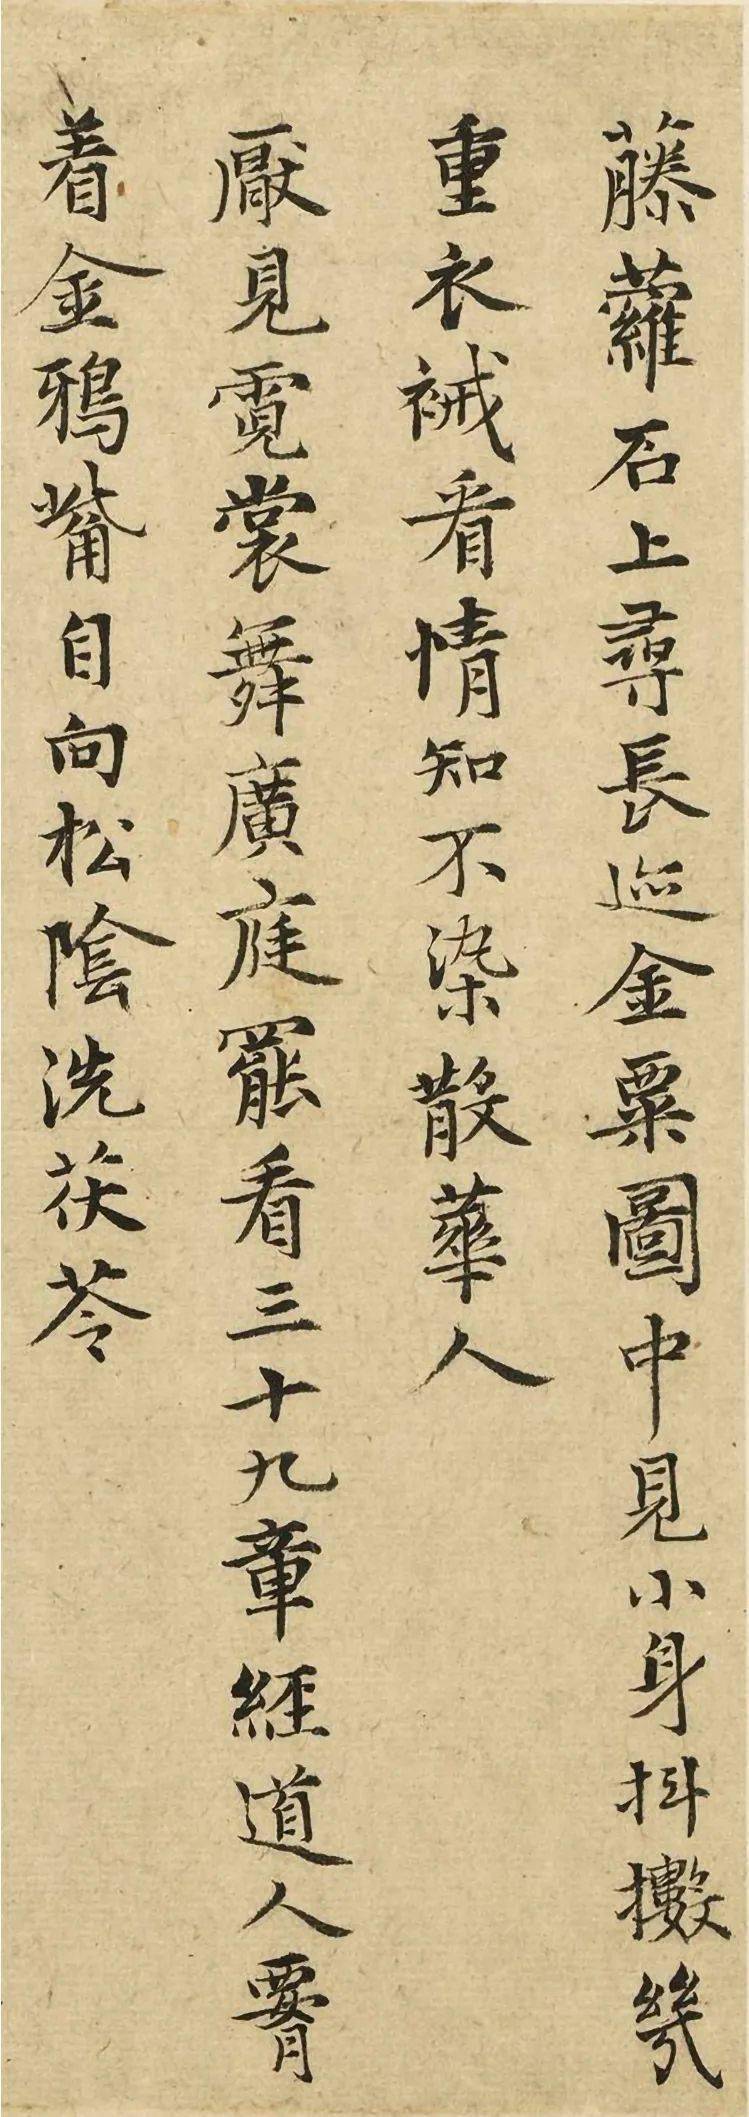 藤蘿石上尋長巡金粟圖中見小身抖擻幾
重衣祴看情知不染散華人
厭見霓裳舞廣庭罷看三十九章經道人要
着金鴉觜自向松陰洗茯苓